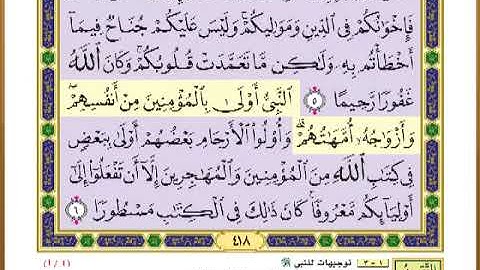 فَإِخْوَٰنُكُمْ فِى ٱلدِّينِ وَمَوَٰلِيكُمْ ۚ وَلَيْسَ عَلَيْكُمْ جُنَاحٌ فِيمَآ
أَخْطَأْتُم بِهِۦ وَلَـٰكِن مَّا تَعَمَّدَتْ قُلُوبُكُمْ ۚ وَكَانَ ٱللَّهُ
غَفُورًا رَّحِيمًا ٥ ٱلنَّبِىُّ أَوْلَىٰ بِٱلْمُؤْمِنِينَ مِنْ أَنفُسِهِمْ ۖ
وَأَزْوَٰجُهُۥٓ أُمَّهَـٰتُهُمْ ۗ وَأُو۟لُوا۟ ٱلْأَرْحَامِ بَعْضُهُمْ أَوْلَىٰ بِبَعْضٍ
فِى كِتَـٰبِ ٱللَّهِ مِنَ ٱلْمُؤْمِنِينَ وَٱلْمُهَـٰجِرِينَ إِلَّآ أَن تَفْعَلُوٓا۟ إِلَىٰٓ
أَوْلِيَآئِكُم مَّعْرُوفًا ۚ كَانَ ذَٰلِكَ فِى ٱلْكِتَـٰبِ مَسْطُورًا ٦
٤١٨
١ - ٣ توجيهات للنبي ﷺ (١ / ٤)